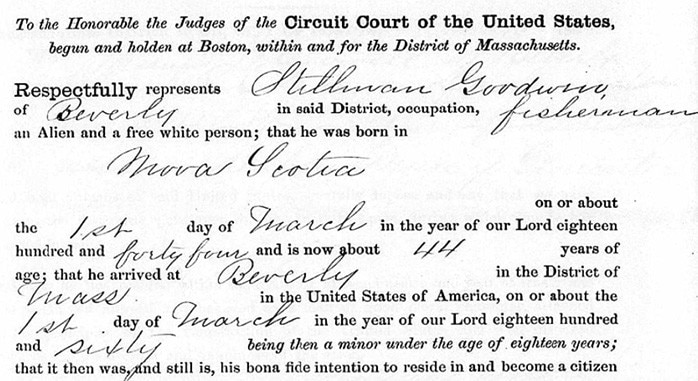 To the Honorable the Judges of the Circuit Court of the United States,
begun and holden at Boston, within and for the District of Massachusetts.
Respectfully represents Stillman Goodwin,
of Beverly in said District, occupation, fisherman
an Alien and a free white person; that he was born in
Nova Scotia
on or about
the 1st day of March in the year of our Lord eighteen
hundred and forty four and is now about 44 years of
age; that he arrived at Beverly in the District of
Mass. in the United States of America, on or about the
1st day of March in the year of our Lord eighteen hundred
and sixty being then a minor under the age of eighteen years;
that it then was, and still is, his bona fide intention to reside in and become a citizen